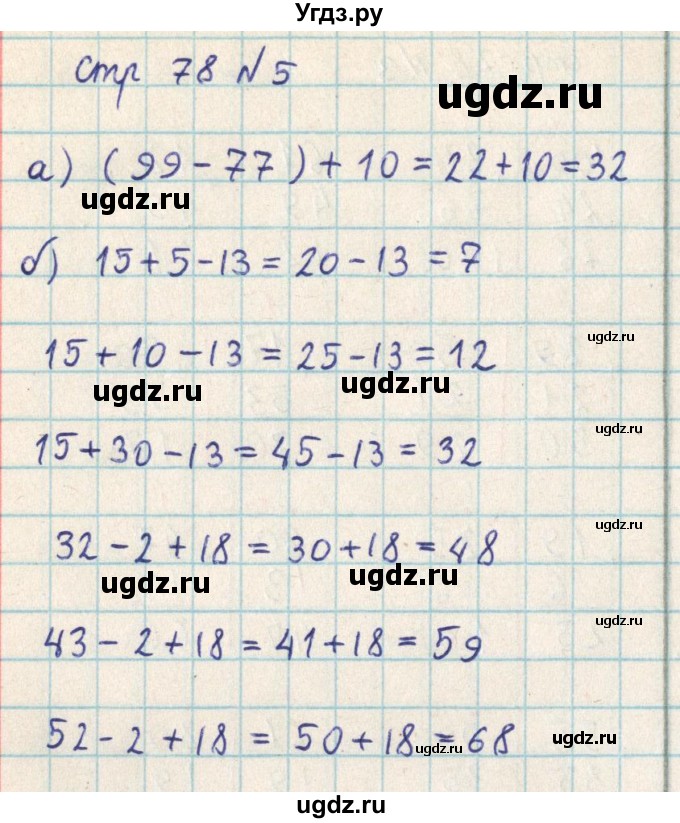 Угдз.ру
стр 78 №5
ugdz.ru
а) (99-77)+10=22+10=32
ugdz.ru
б) 15+5-13=20-13=7
ugdz.ru
15+10-13=25-13=12
ugdz.ru ugdz.ru
ugdz.ru
15+30-13=45-13=32
32-2+18=30+18=48
ugdz.ru ugdz.ru
ugdz.ru
43-2+18=41+18=59
52-2+18=50+18=68
ugdz.ru ugdz.ru
ugdz.ru